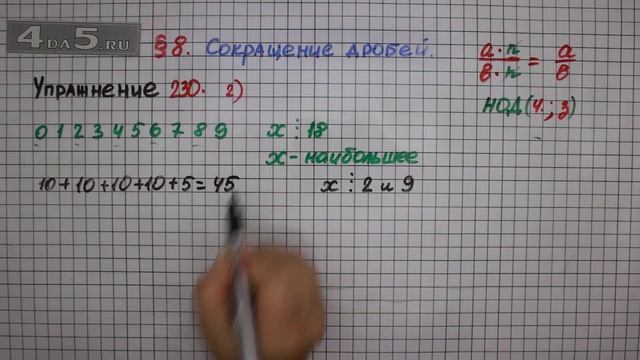 4DA5.RU
§8. Сокращение дробей.
a·n/в·n = a/в
Упражнение 230. 2)
НОД(4;3)
0 1 2 3 4 5 6 7 8 9 x ⋮ 18
x - наибольшее
10+10+10+10+5=45 x ⋮ 2 и 9